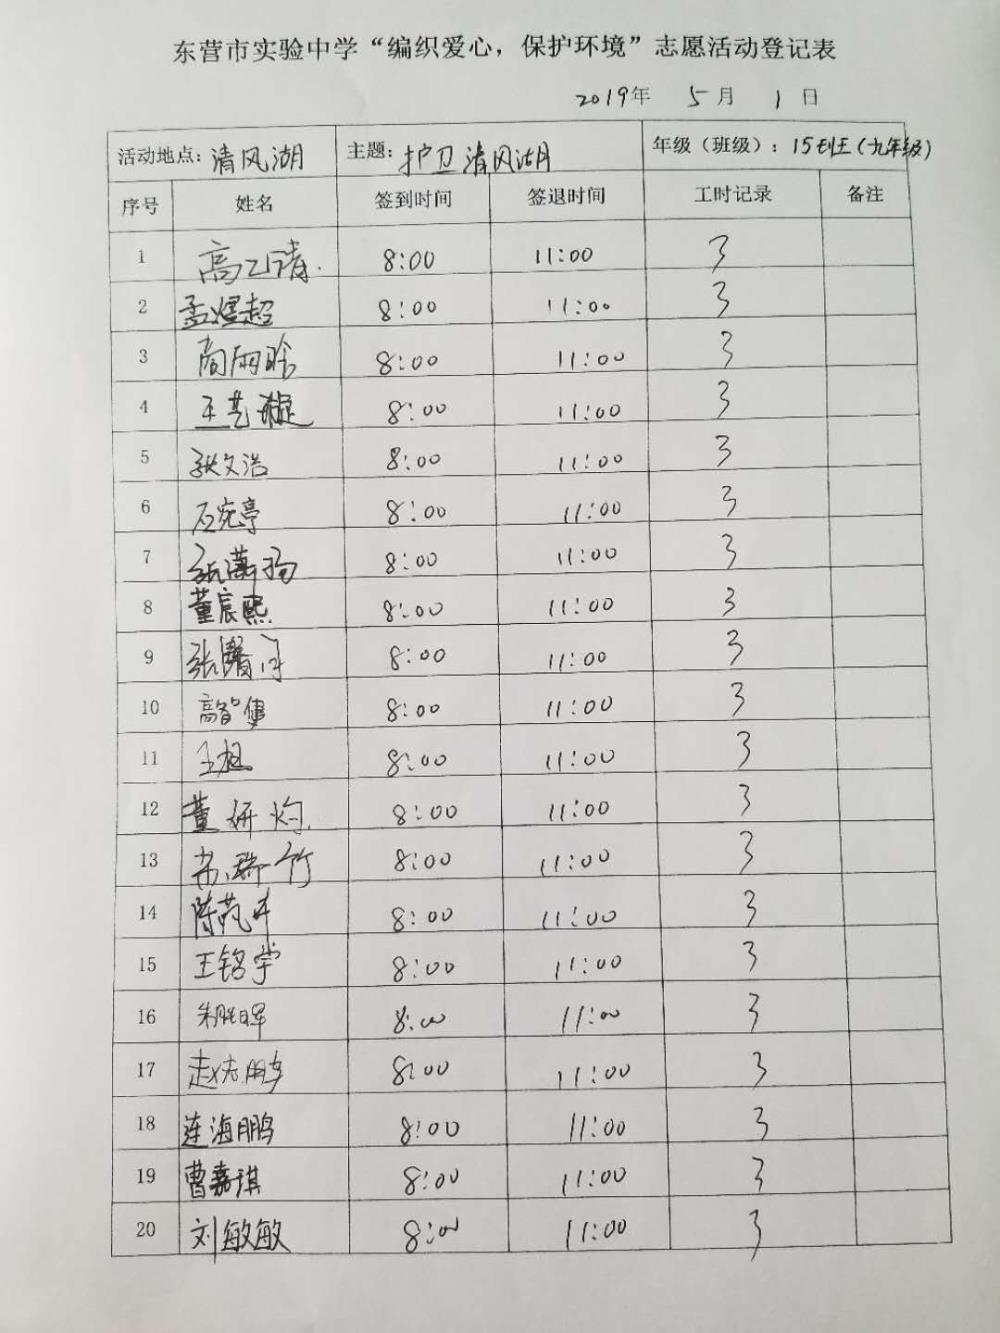 东营市实验中学“编织爱心，保护环境”志愿活动登记表
2019年 5月 1日
活动地点：清风湖 主题：护卫清风湖 年级（班级）：15班（九年级）
序号 姓名 签到时间 签退时间 工时记录 备注
1 高 8:00 11:00 3
2 孟煜超 8:00 11:00 3
3 雨晗 8:00 11:00 3
4 王艺璇 8:00 11:00 3
5 张文浩 8:00 11:00 3
6 石宛亭 8:00 11:00 3
7 张潇扬 8:00 11:00 3
8 董宸熙 8:00 11:00 3
9 张 8:00 11:00 3
10 高智健 8:00 11:00 3
11 王旭 8:00 11:00 3
12 董妍灼 8:00 11:00 3
13 瑞竹 8:00 11:00 3
14 陈 8:00 11:00 3
15 王铭宇 8:00 11:00 3
16 朱 8:00 11:00 3
17 赵 8:00 11:00 3
18 连海鹏 8:00 11:00 3
19 曹嘉琪 8:00 11:00 3
20 刘敏敏 8:00 11:00 3